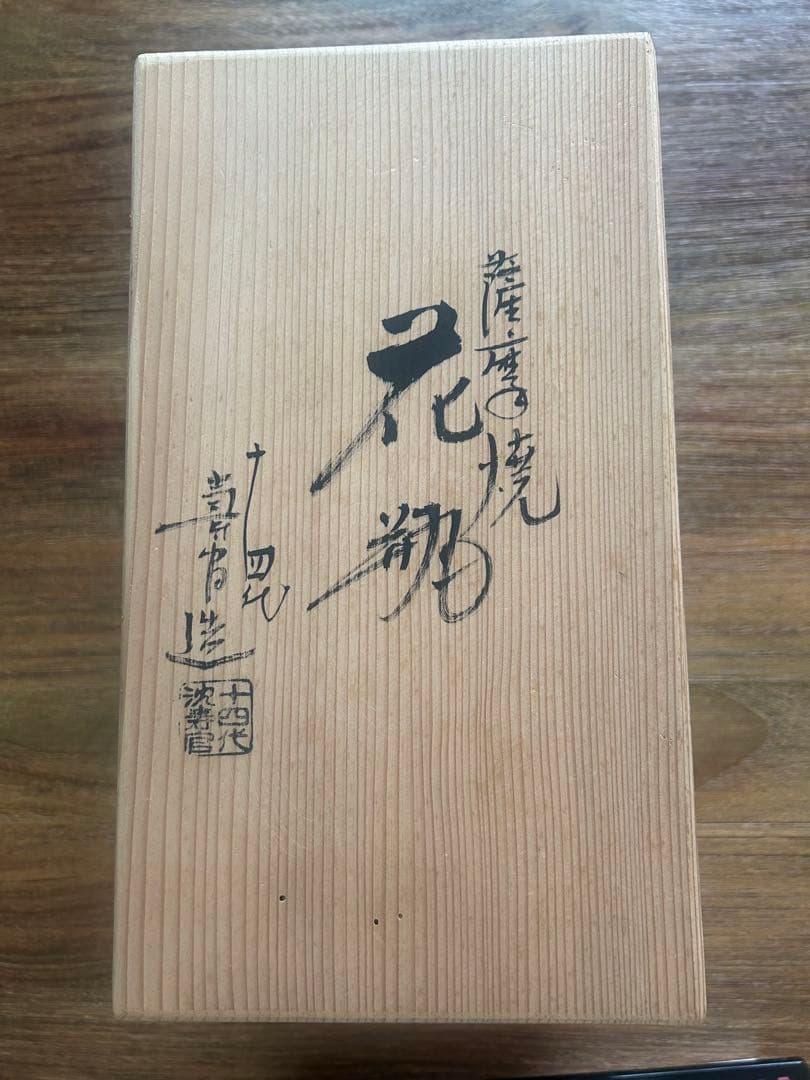 薩摩焼
花瓶
十四代
壽官造
十四代
沈壽官